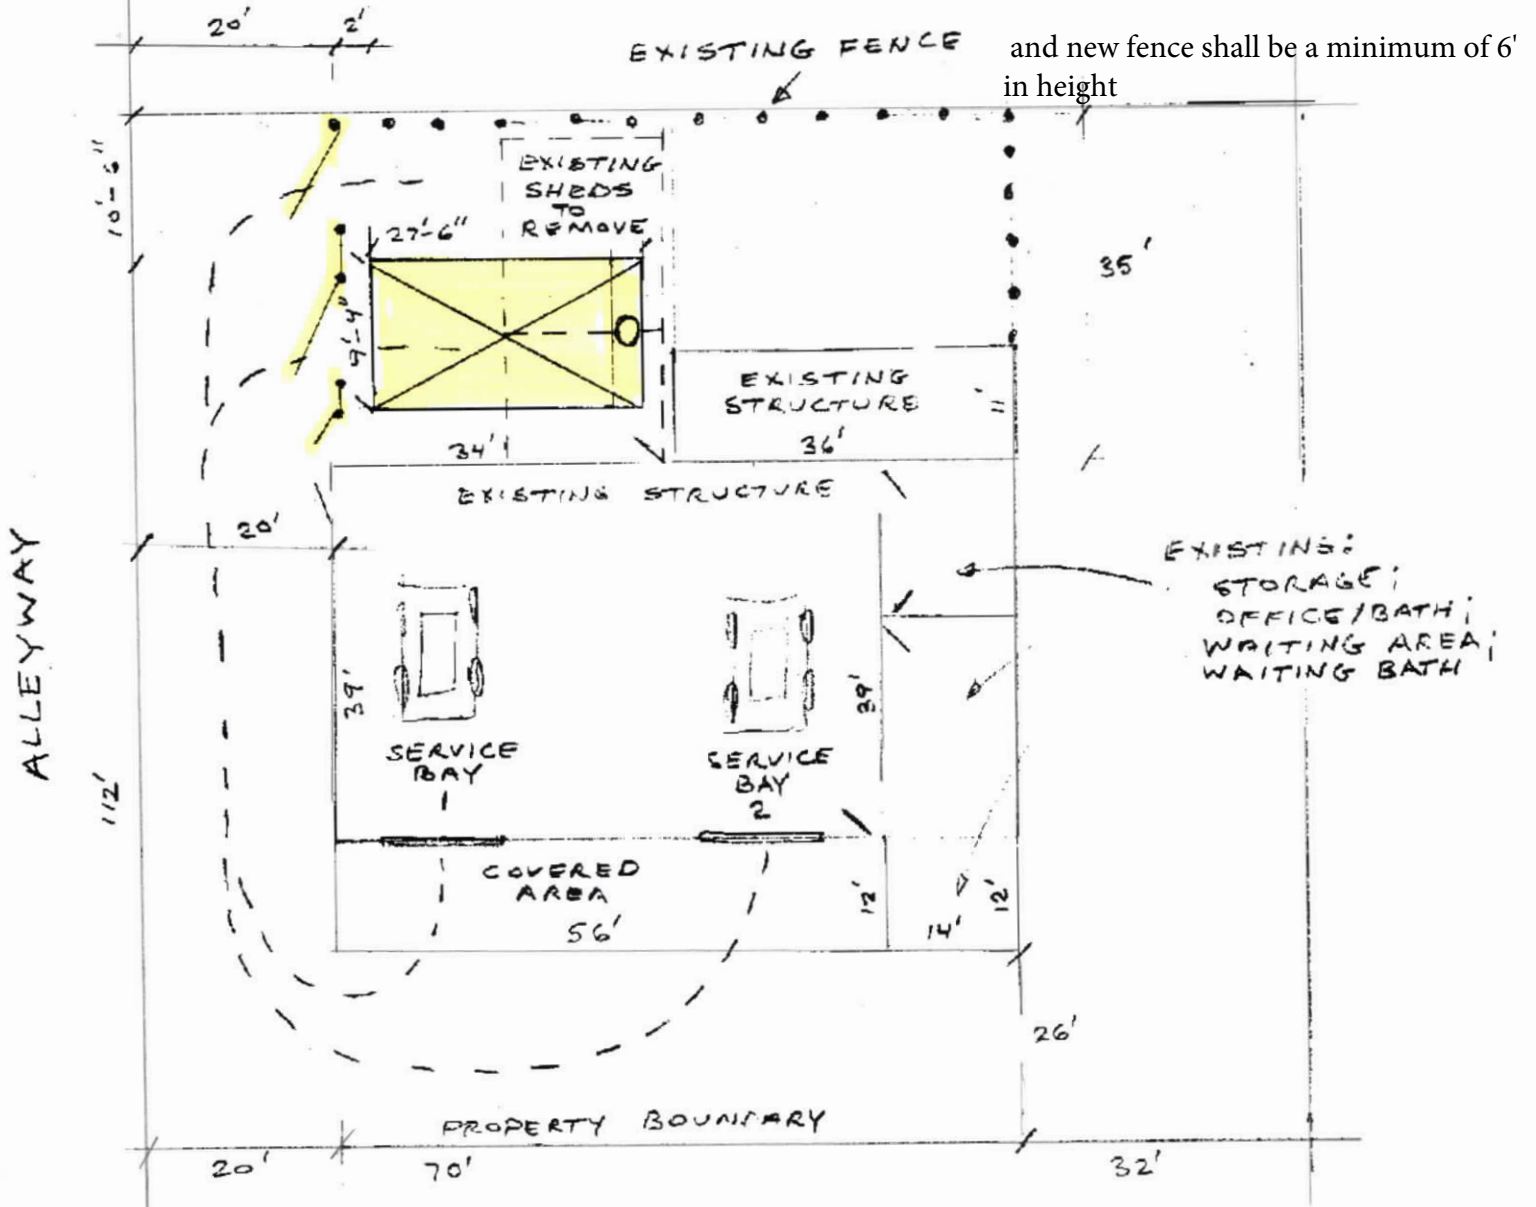 20'
2'
EXISTING FENCE
and new fence shall be a minimum of 6'
in height
10'-6"
EXISTING
SHEDS
TO
REMOVE
27'-6"
9'-4"
35'
EXISTING
STRUCTURE
11'
34'
36'
EXISTING STRUCTURE
20'
EXISTING:
STORAGE;
OFFICE/BATH;
WAITING AREA;
WAITING BATH
ALLEYWAY
112'
39'
39'
SERVICE
BAY
1
SERVICE
BAY
2
COVERED
AREA
12'
12'
56'
14'
26'
PROPERTY BOUNDARY
20'
70'
32'